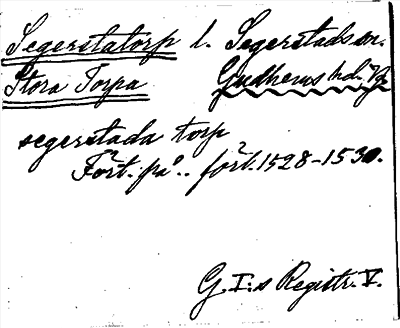 Segerstatorp l. Segerstads sn.
Stora Torpa Gudhems hd. Vg
segerstada torp
Fört. på .. fört. 1528-1530.
G. I:s Registr. V.